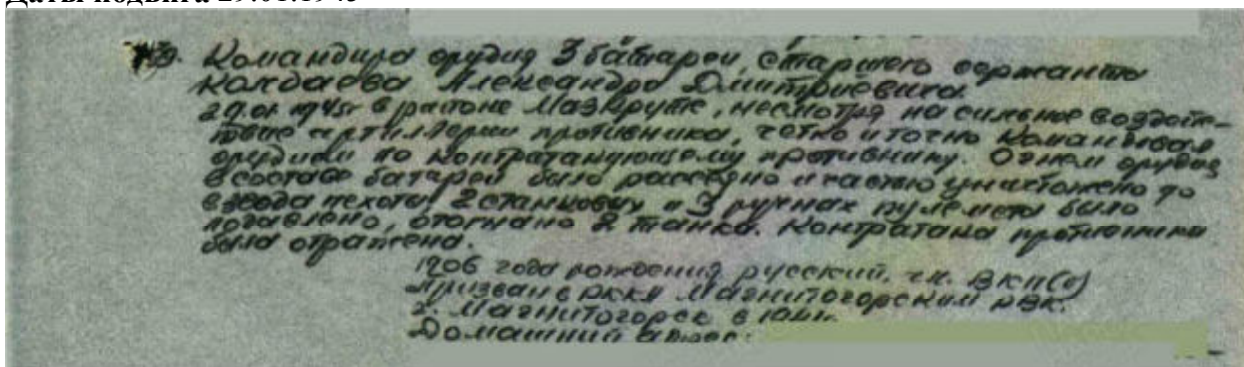 Даты подвига 29.01.1945
Командира орудия 3 батареи, старшего сержанта
Колдаева Александра Дмитриевича.
29.01.1945г в районе Мазкруте, несмотря на сильное воздейс-
твие артиллерии противника, четко и точно командовал
орудием по контратакующему противнику. Огнем орудия
в составе батареи было рассеяно и частью уничтожено до
взвода пехоты, 2 станковых и 3 ручных пулемета было
подавлено, отогнано 2 танка. Контратака противника
была отражена.
1906 года рождения русский, чл. ВКП(б)
Призван в РККА Магнитогорским РВК.
г. Магнитогорск в
Домашний адрес: